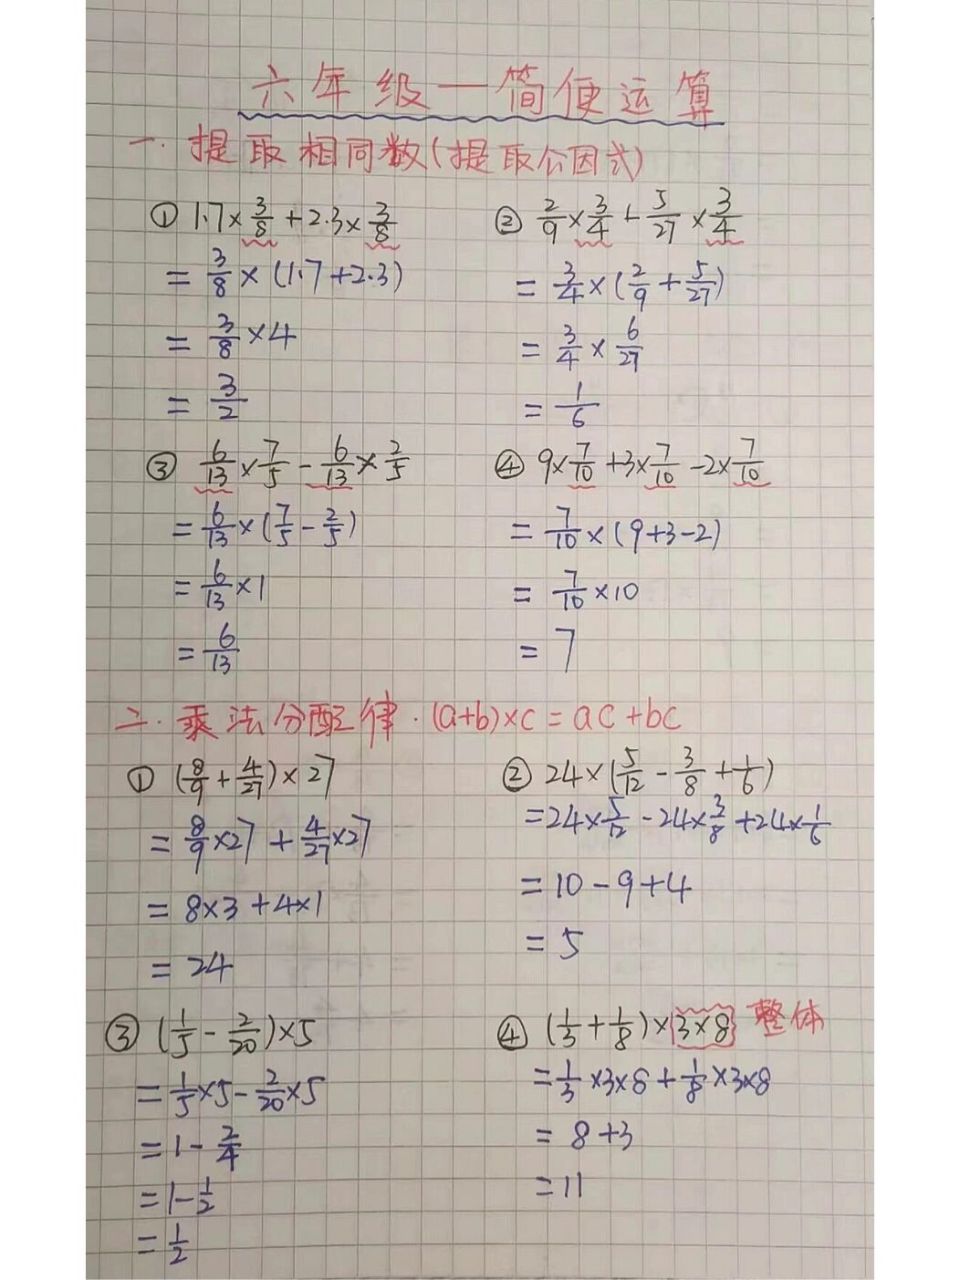 六年级—简便运算
一.提取相同数(提取公因式)
① 1.7×3/8+2.3×3/8
=3/8×(1.7+2.3)
=3/8×4
=3/2
② 2/9×3/4+5/27×3/4
=3/4×(2/9+5/27)
=3/4×6/27
=1/6
③ 6/13×7/5-6/13×2/5
=6/13×(7/5-2/5)
=6/13×1
=6/13
④ 9×7/10+3×7/10-2×7/10
=7/10×(9+3-2)
=7/10×10
=7
二.乘法分配律.(a+b)×c=ac+bc
① (8/9+4/27)×27
=8/9×27+4/27×27
=8×3+4×1
=24
② 24×(5/12-3/8+1/6)
=24×5/12-24×3/8+24×1/6
=10-9+4
=5
③ (1/5-2/20)×5
=1/5×5-2/20×5
=1-2/4
=1-1/2
=1/2
④ (1/3+1/8)×3×8 整体
=1/3×3×8+1/8×3×8
=8+3
=11